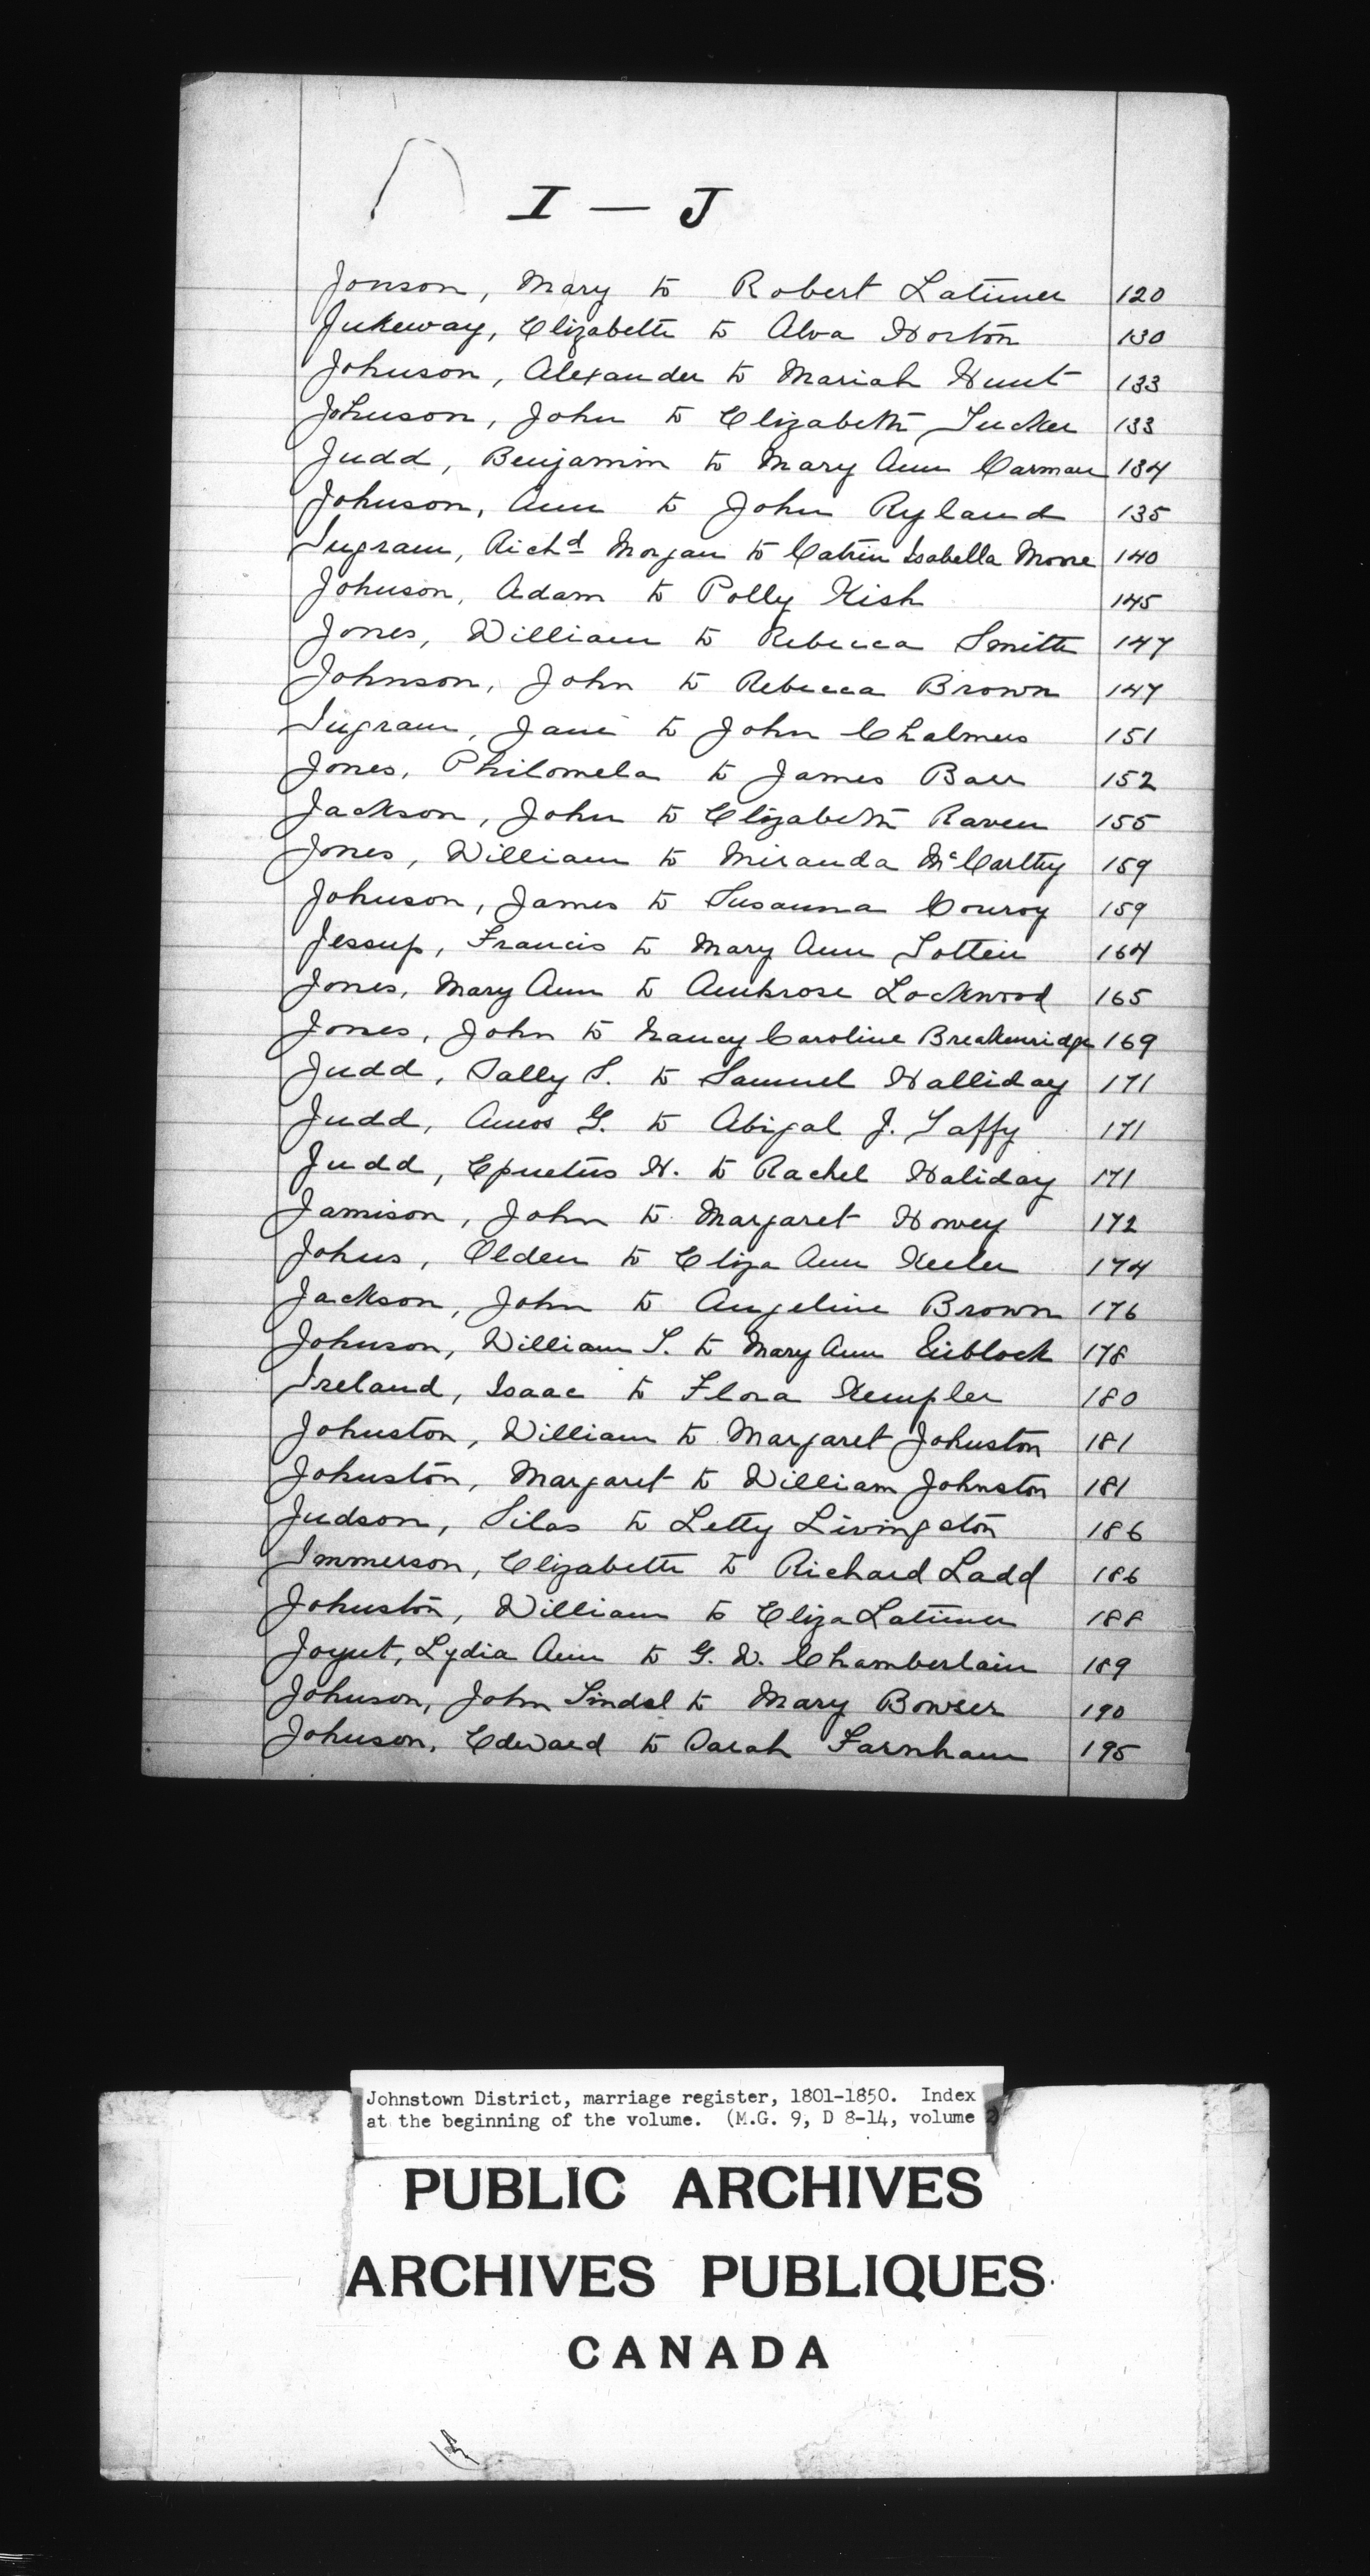 I — J
Jonson, Mary to Robert Latimer 120
Jukeway, Elizabeth to Alva Horton 130
Johnson, Alexander to Mariah Hunt 133
Johnson, John to Elizabeth Tucker 133
Judd, Benjamin to Mary Ann Carman 134
Johnson, Ann to John Ryland 135
Ingram, Richd Morgan to Catrin Isabella Moore 140
Johnson, Adam to Polly Kish 145
Jones, William to Rebecca Smith 147
Johnson, John to Rebecca Brown 147
Ingram, Jane to John Chalmers 151
Jones, Philomela to James Barr 152
Jackson, John to Elizabeth Raven 155
Jones, William to Miranda McCarthy 159
Johnson, James to Susanna Conroy 159
Jessup, Francis to Mary Ann 164
Jones, Mary Ann to Ambrose Lockwood 165
Jones, John to Nancy Caroline Breakenridge 169
Judd, Sally S. to Samuel Halliday 171
Judd, Amos G. to Abigal J. Taffy 171
Judd, Epnetus H. to Rachel Haliday 171
Jamison, John to Margaret Howey 172
Johns, Olden to Eliza Ann Keeler 174
Jackson, John to Angeline Brown 176
Johnson, William S. to Mary Ann 178
Ireland, Isaac to Flora Kempler 180
Johnston, William to Margaret Johnston 181
Johnston, Margaret to William Johnston 181
Judson, Silas to Letty Livingston 186
Immerson, Elizabeth to Richard Ladd 186
Johnston, William to Eliza Latimer 188
Joynt, Lydia Ann to G. W. Chamberlain 189
Johnson, John to Mary Bowser 190
Johnson, Edward to Sarah Farnham 195
Johnstown District, marriage register, 1801-1850. Index
at the beginning of the volume. (M.G. 9, D 8-14, volume
PUBLIC ARCHIVES
ARCHIVES PUBLIQUES
CANADA